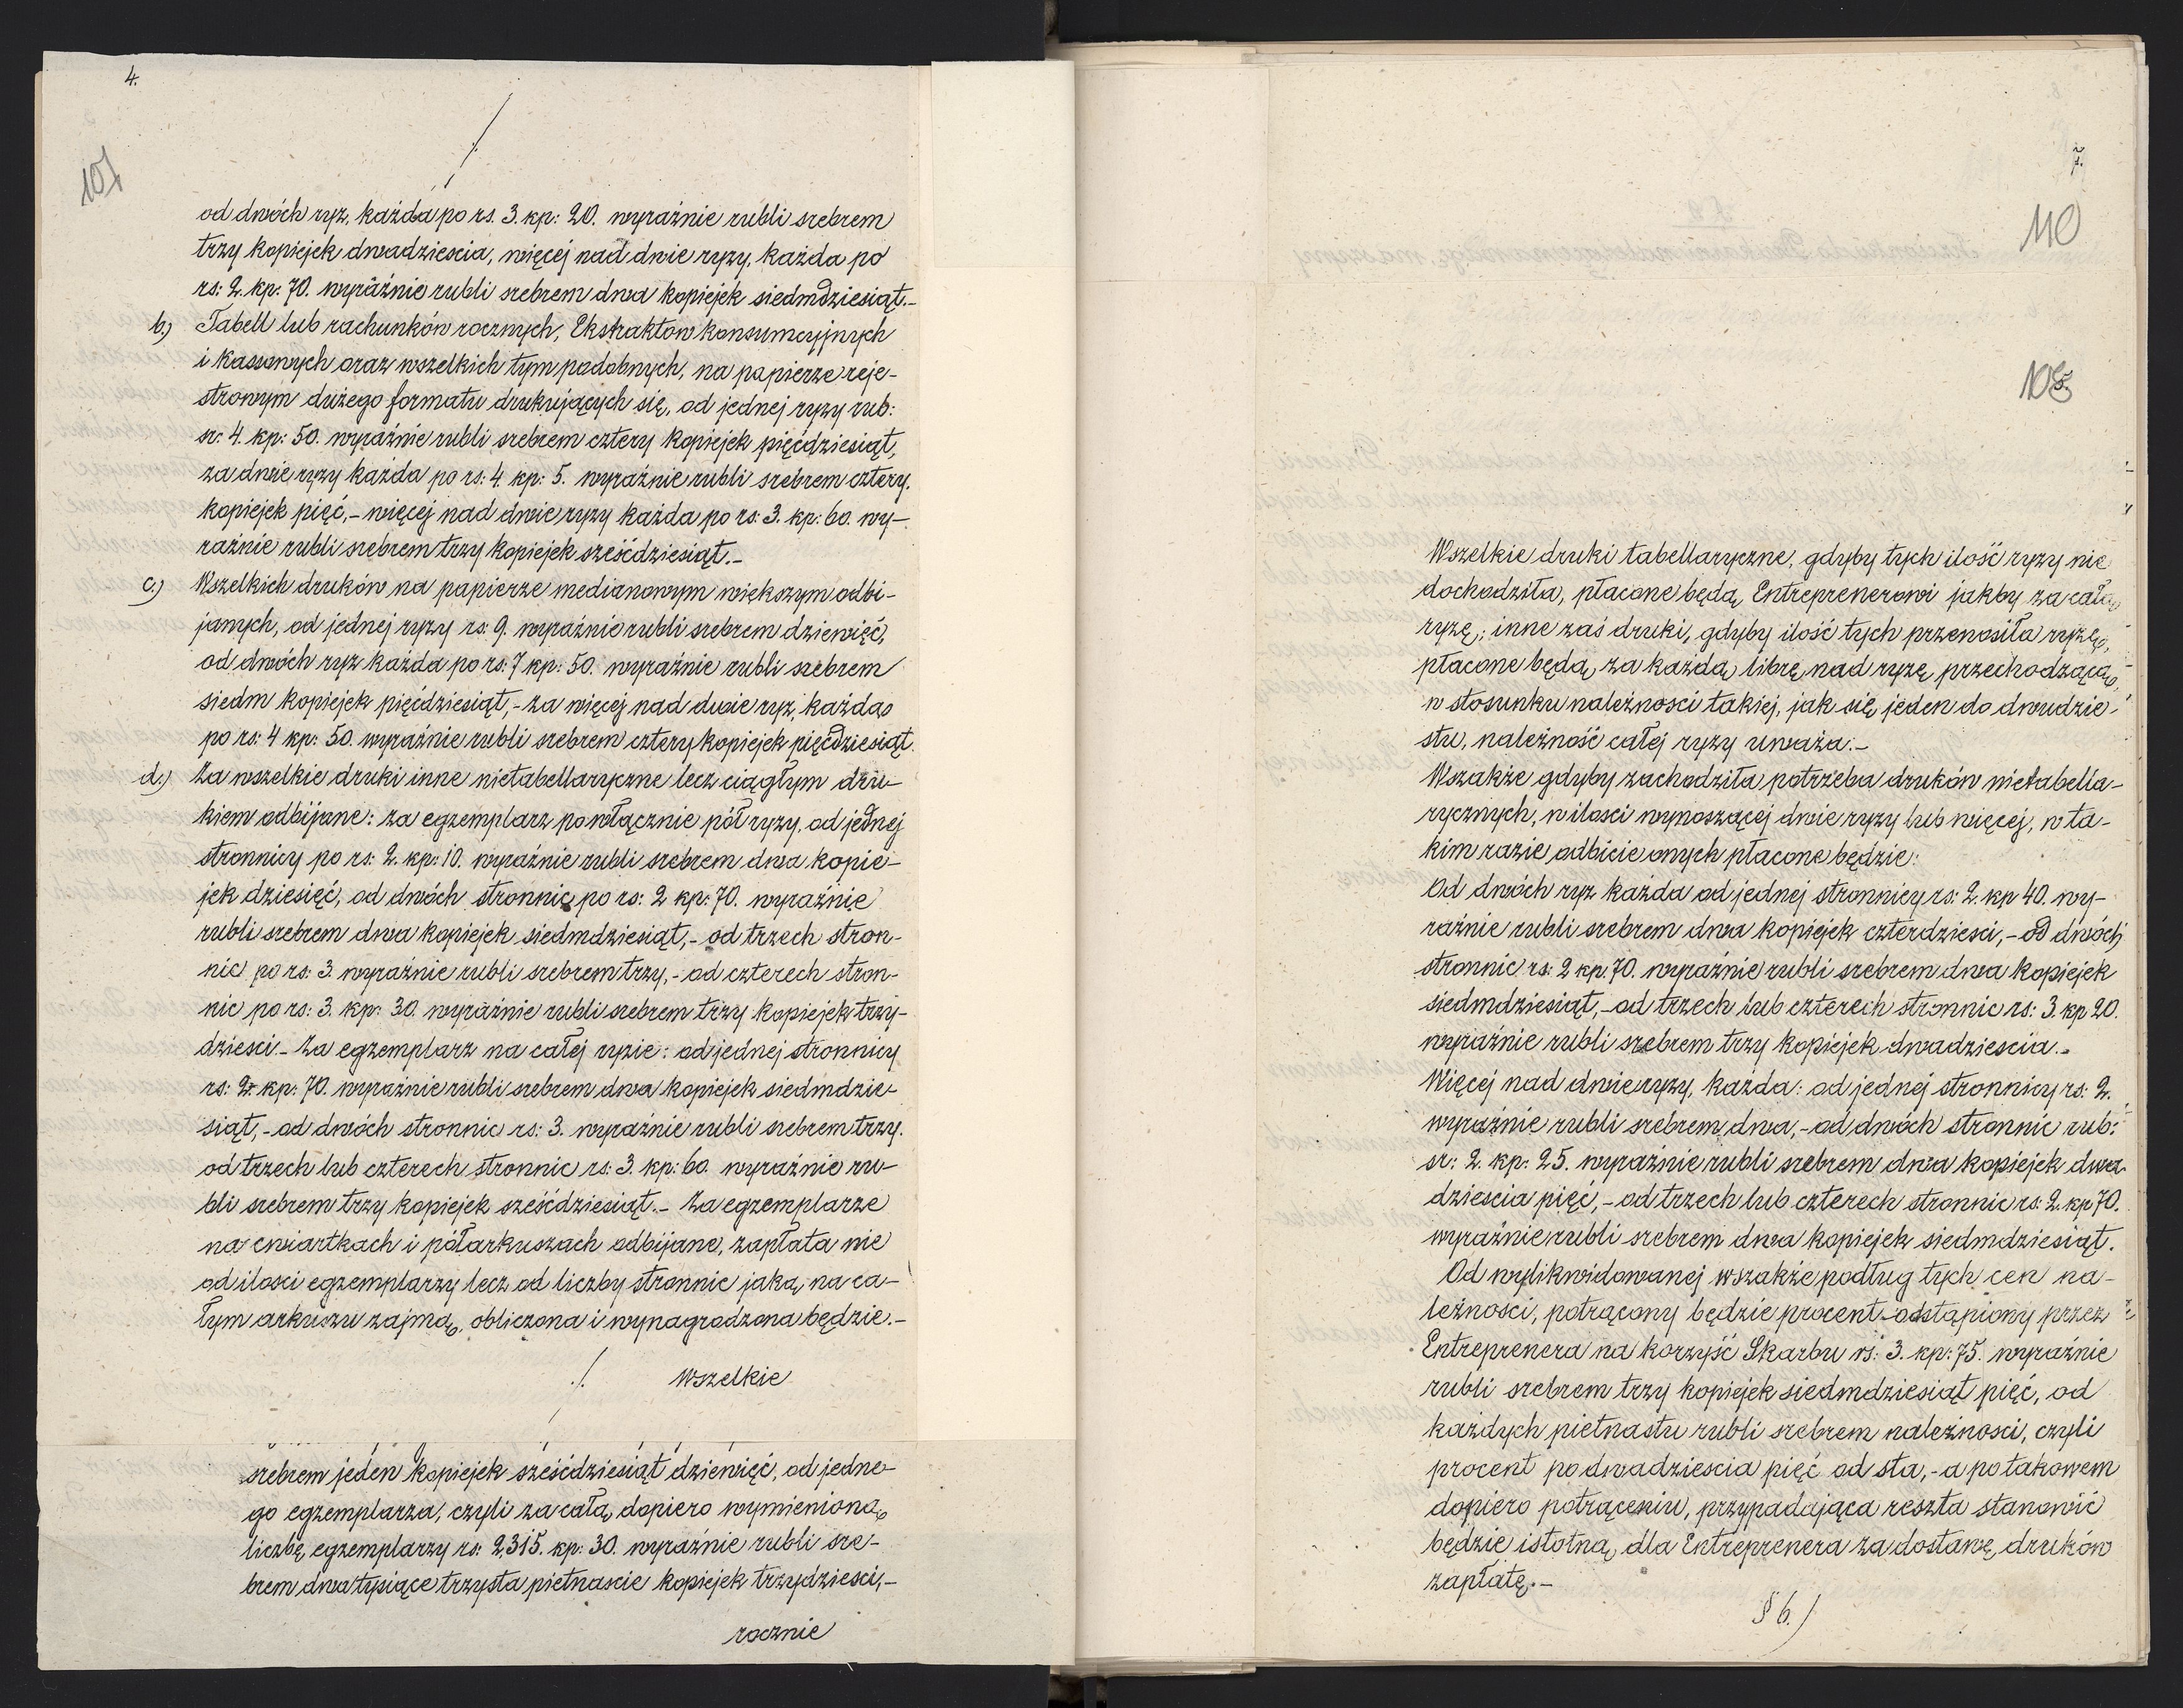 4.
107
od dwóch ryz, każda po rs. 3. kp: 20. wyraźnie rubli srebrem
trzy kopiejek dwadziescia, więcej nad dwie ryzy, każda po
rs: 2. kp: 70. wyraźnie rubli srebrem dwa kopiejek siedmdziesiąt.-
b.) Tabell lub rachunków rocznych, Ekstraktow konsumcyjnych
i kassowych oraz wszelkich tym podobnych, na papierze reje-
strowym dużego formatu drukujących się, od jednej ryzy rub:
sr: 4. kp: 50. wyraźnie rubli srebrem cztery kopiejek pięćdziesiąt,
za dwie ryzy każda po rs: 4. kp: 5. wyraźnie rubli srebrem cztery.
kopiejek pięć,- więcej nad dwie ryzy każda po rs: 3. kp: 60. wy-
raźnie rubli srebrem trzy kopiejek sześćdziesiąt.-
c.) Wszelkich druków na papierze medianowym większym odbi-
janych, od jednej ryzy rs: 9. wyraźnie rubli srebrem dziewięć,
od dwóch ryz każda po rs: 7 kp: 50. wyraźnie rubli srebrem
siedm kopiejek pięćdziesiąt,- za więcej nad dwie ryz, każdą
po rs: 4 kp: 50. wyraźnie rubli srebrem cztery kopiejek pięćdziesiąt.
d.) Za wszelkie druki inne nietabellaryczne lecz ciągłym dru-
kiem odbijane: za egzemplarz po włącznie pół ryzy, od jednej
stronnicy po rs: 2. kp: 10. wyraźnie rubli srebrem dwa kopie-
jek dziesięć, od dwóch stronnic po rs: 2 kp: 70. wyraźnie
rubli srebrem dwa kopiejek siedmdziesiąt,- od trzech stron-
nic po rs: 3. wyraźnie rubli srebrem trzy,- od czterech stron-
nic po rs: 3. kp: 30. wyraźnie rubli srebrem trzy kopiejek trzy-
dziesci.- Za egzemplarz na całej ryzie: od jednej stronnicy
rs: 2. kp: 70. wyraźnie rubli srebrem dwa kopiejek siedmdzie-
siąt,- od dwóch stronnic rs: 3. wyraźnie rubli srebrem trzy.
od trzech lub czterech stronnic rs: 3. kp: 60. wyraźnie ru-
bli srebrem trzy kopiejek sześćdziesiąt.- Za egzemplarze
na cwiartkach i półarkuszach odbijane, zapłata nie
od ilosci egzemplarzy lecz od liczby stronnic jaką na ca-
łym arkuszu zajmą, obliczona i wynagrodzona będzie.-
./. Wszelkie
srebrem jeden kopiejek sześćdziesiąt dziewięć, od jedne-
go egzemplarza, czyli za całą dopiero wymienioną
liczbę egzemplarzy rs: 2,315. kp: 30. wyraźnie rubli sre-
brem dwa tysiące trzysta pietnascie kopiejek trzydziesci,-
rocznie
110
108
Wszelkie druki tabellaryczne, gdyby tych ilość ryzy nie
dochodziła, płacone będą Entreprenerowi jakby za całą
ryzę; inne zaś druki, gdyby ilość tych przenosiła ryzę,
płacone będą, za każdą librę nad ryzę przechodzącą,
w stosunku należnosci takiej, jak się jeden do dwudzie-
stu, należność całej ryzy uważa.-
Wszakże gdyby zachodziła potrzeba druków nietabella-
rycznych, w ilosci wynoszącej dwie ryzy lub więcej, w ta-
kim razie odbicie onych płacone będzie:
Od dwóch ryz każda od jednej stronnicy rs: 2. kp 40. wy-
raźnie rubli srebrem dwa kopiejek czterdziesci,- od dwóch
stronnic rs: 2 kp. 70. wyraźnie rubli srebrem dwa kopiejek
siedmdziesiąt,- od trzech lub czterech stronnic rs: 3. kp 20.
wyraźnie rubli srebrem trzy kopiejek dwadziescia.-
Więcej nad dwie ryzy, każda: od jednej stronnicy rs: 2.
wyraźnie rubli srebrem dwa,- od dwóch stronnic rub:
sr: 2. kp: 25. wyraźnie rubli srebrem dwa kopiejek dwa-
dziescia pięć,- od trzech lub czterech stronnic rs: 2. kp 70.
wyraźnie rubli srebrem dwa kopiejek siedmdziesiąt.
Od wylikwidowanej wszakże podług tych cen na-
leżnosci, potrącony będzie procent odstąpiony przez
Entreprenera na korzyść Skarbu rs: 3. kp: 75. wyraźnie
rubli srebrem trzy kopiejek siedmdziesiąt pięć, od
każdych pietnastu rubli srebrem należnosci, czyli
procent po dwadziescia pięć od sta,- a po takowem
dopiero potrąceniu, przypadająca reszta stanowić
będzie istotną dla Entreprenera za dostawę druków
zapłatę.-
§ 6.)